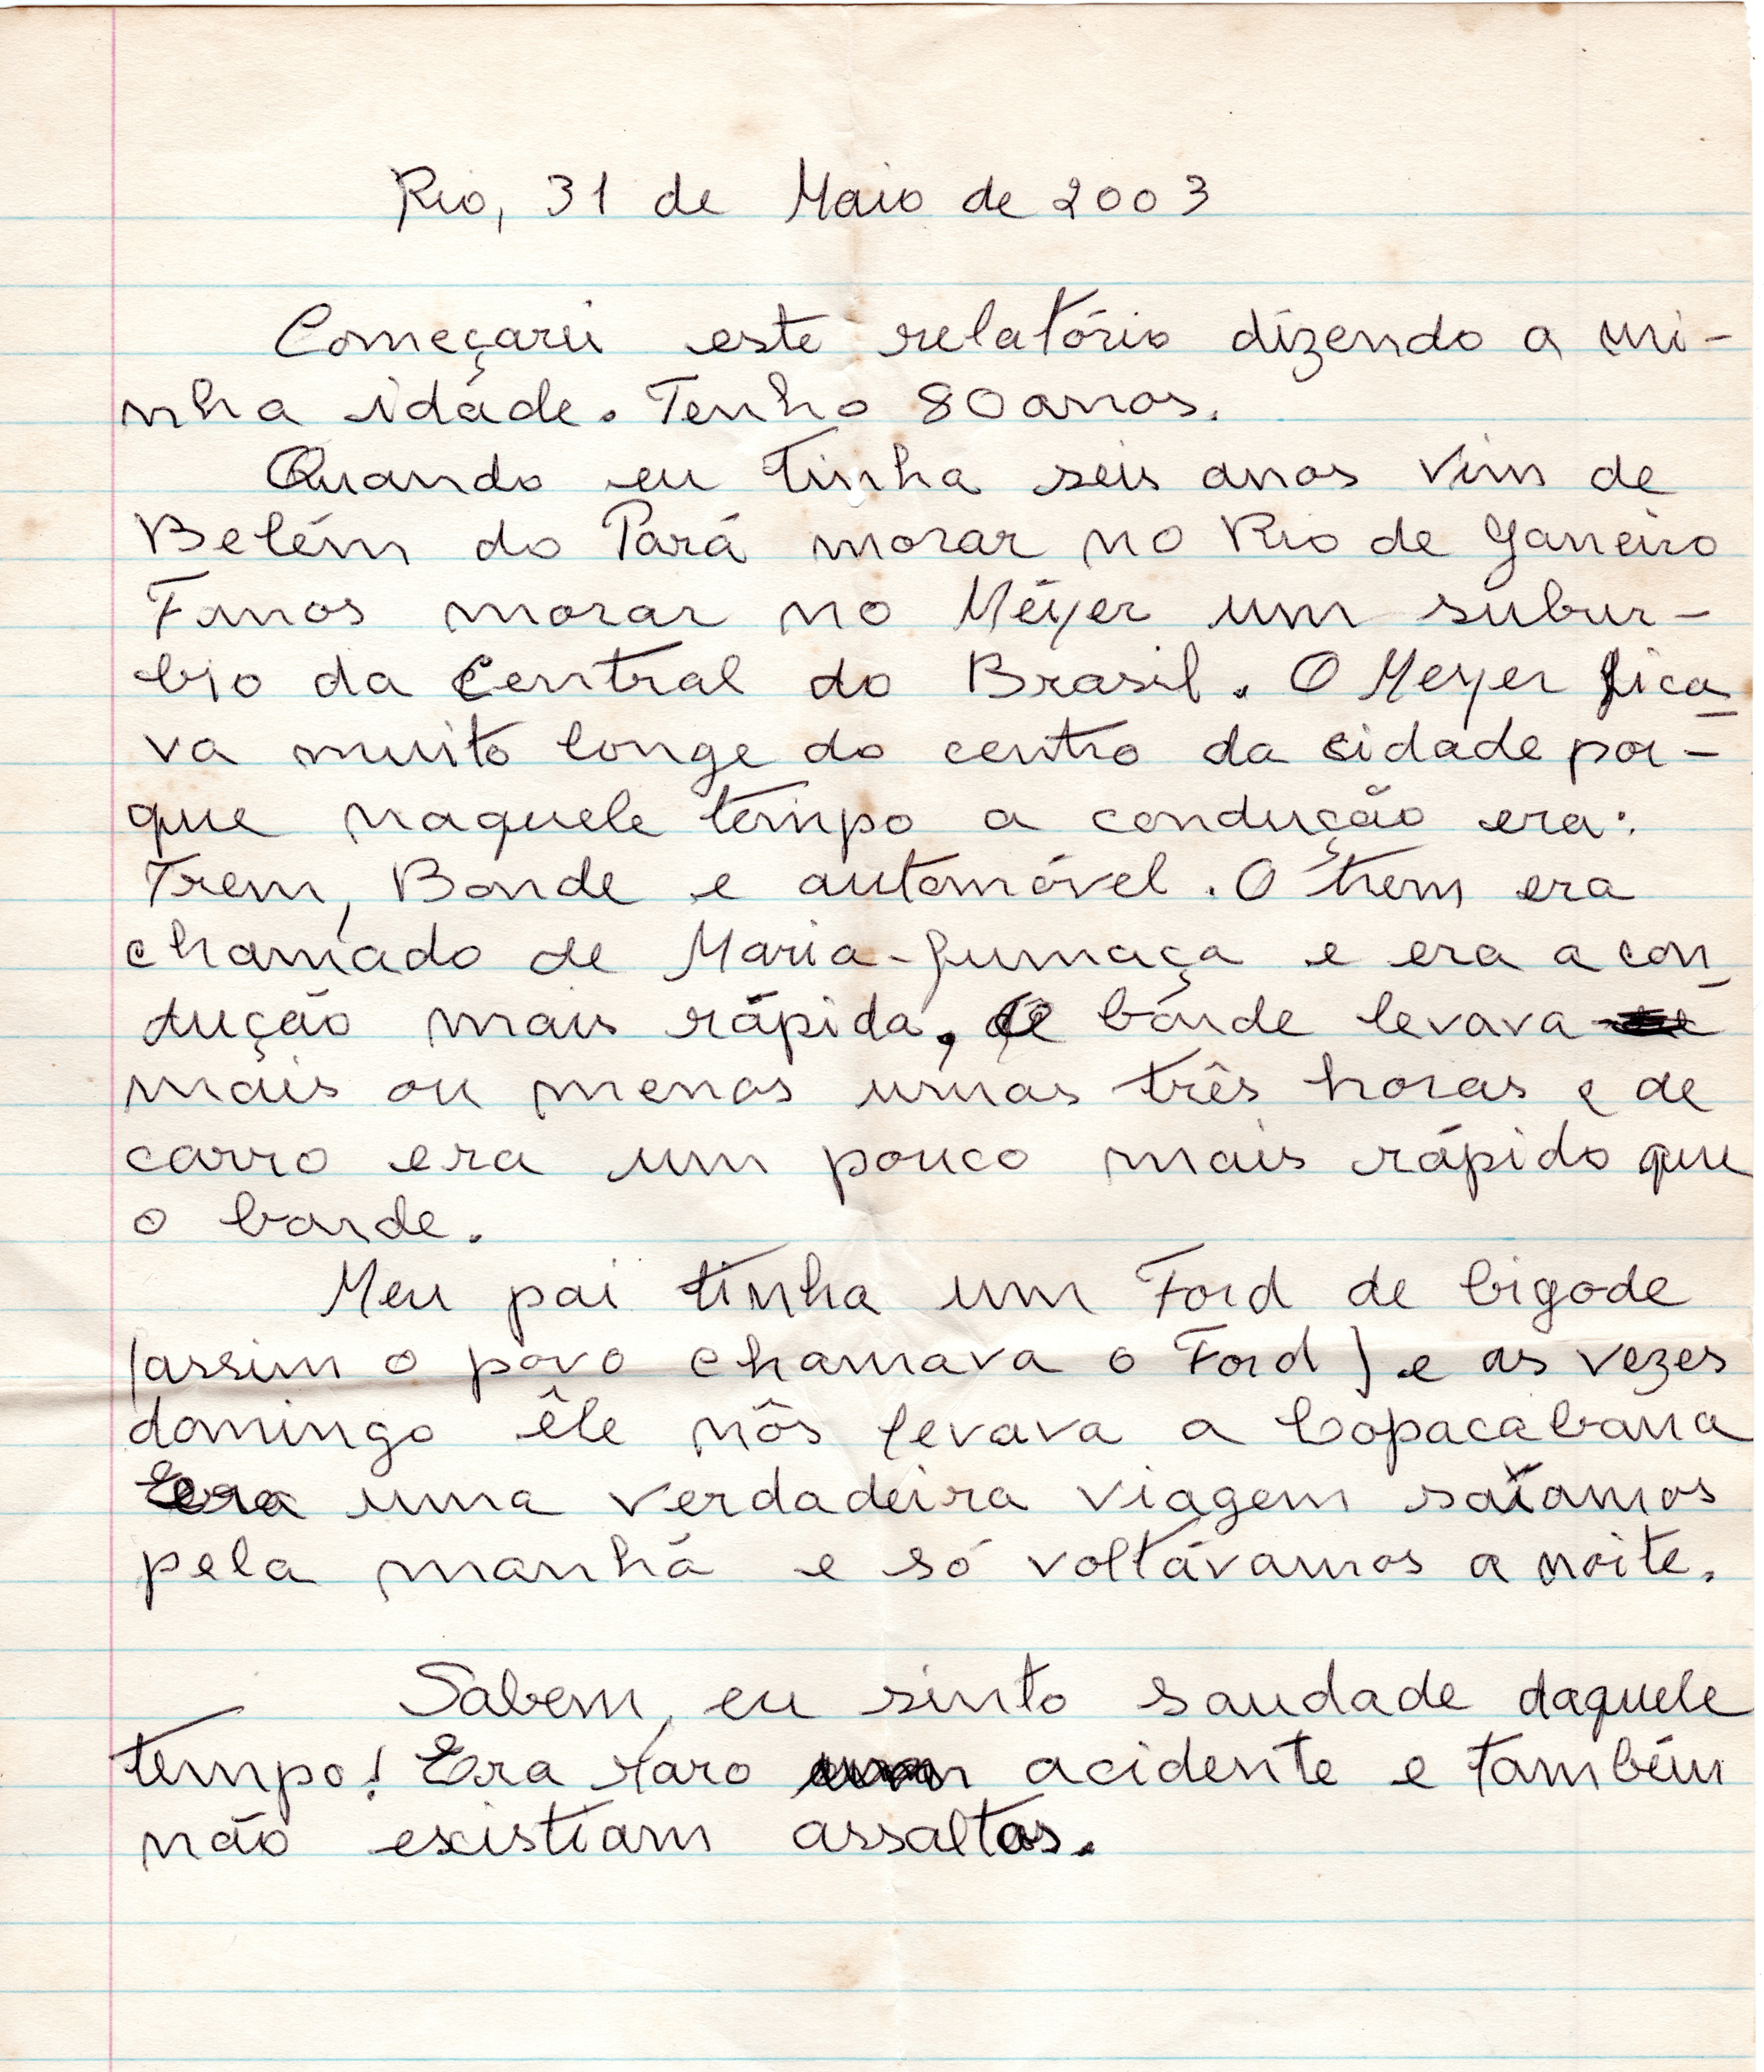 Rio, 31 de Maio de 2003
Começarei este relatório dizendo a mi-
nha idade. Tenho 80 anos.
Quando eu tinha seis anos vim de
Belém do Pará morar no Rio de Janeiro
Fomos morar no Méyer um subur-
bio da Central do Brasil. O Meyer fica-
va muito longe do centro da cidade por-
que naquele tempo a condução era:
Trem, Bonde e automóvel. O trem era
chamado de Maria-fumaça e era a con-
dução mais rápida, de bonde levava
mais ou menos umas três horas e de
carro era um pouco mais rápido que
o bonde.
Meu pai tinha um Ford de bigode
(assim o povo chamava o Ford) e as vezes
domingo êle nôs levava a Copacabana
Era uma verdadeira viagem saíamos
pela manhã e só voltávamos a noite.
Sabem, eu sinto saudade daquele
tempo! Era raro acidente e também
não existiam assaltos.